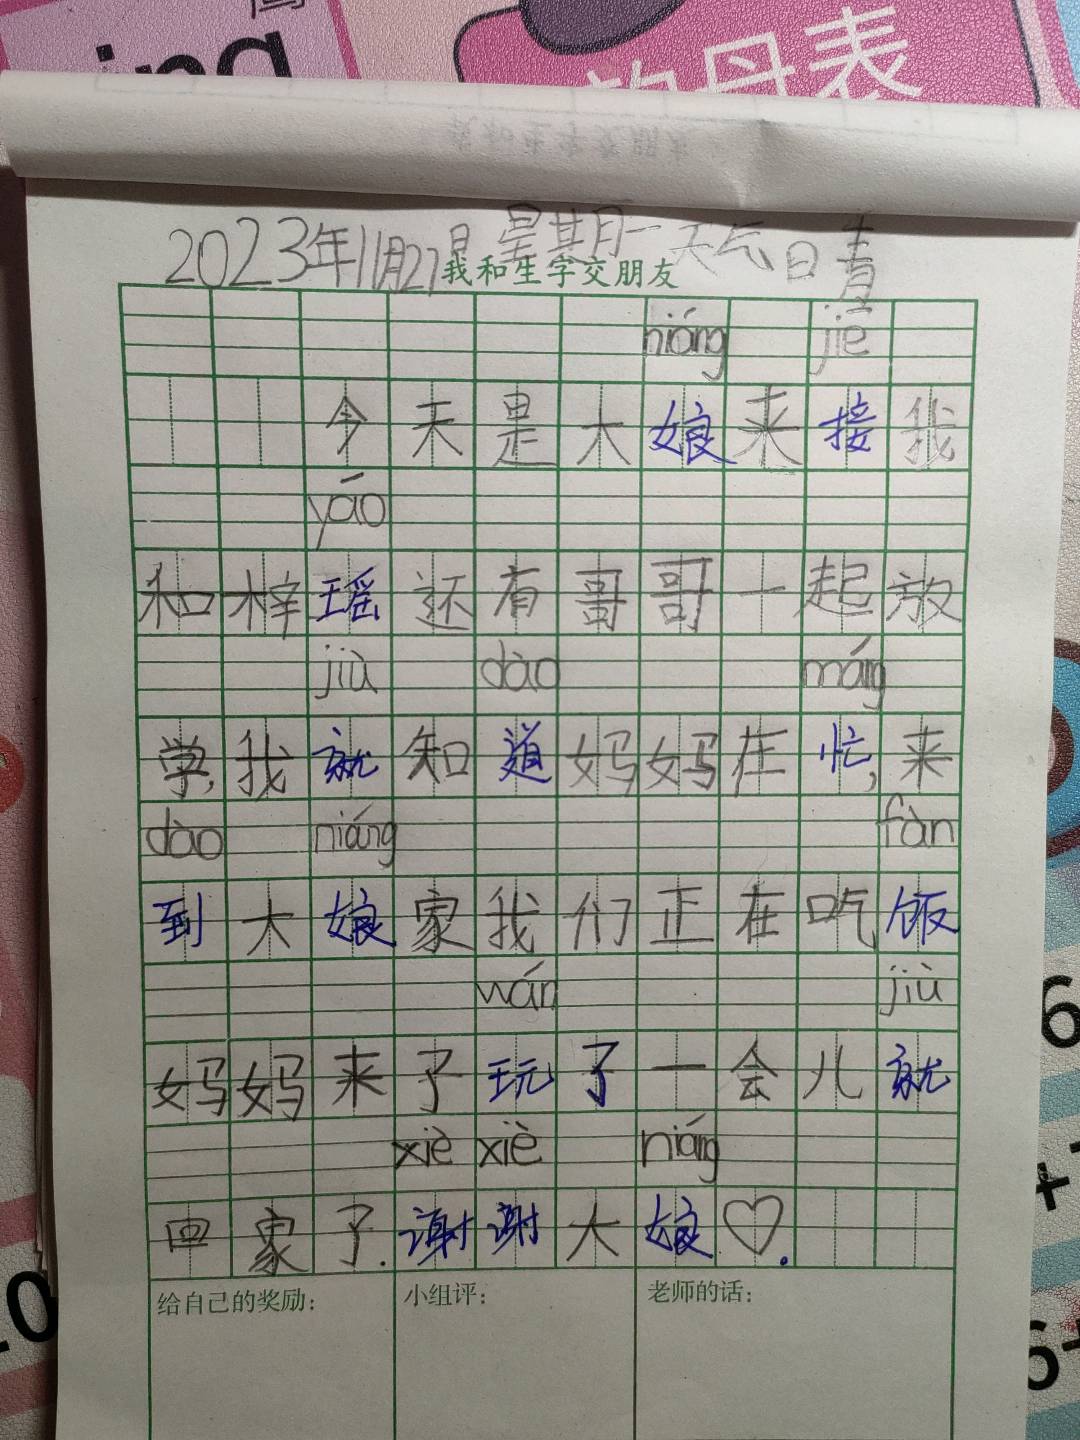 ing
韵母表
2023年11月27日星期一天气日青
我和生字交朋友
niáng jiē
今天是大娘来接我
yáo
和梓瑶还有哥哥一起放
jiù dào máng
学,我就知道妈妈在忙,来
dào niáng fàn
到大娘家我们正在吃饭
wán jiù
妈妈来了玩了一会儿就
xiè xiè niáng
回家了.谢谢大娘♡.
给自己的奖励: 小组评: 老师的话: